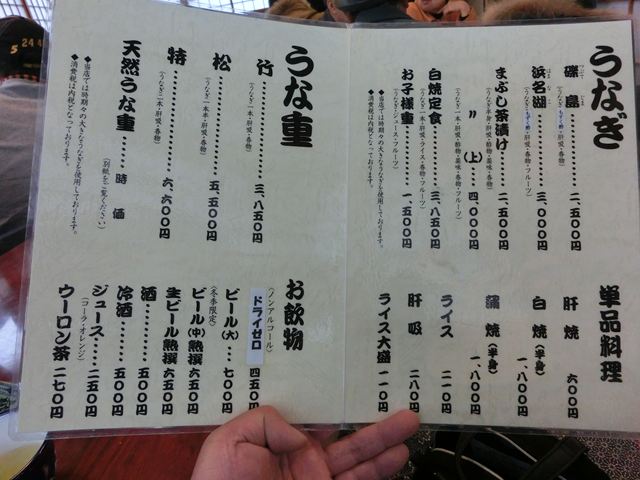 うなぎ
磯島‥‥‥‥二、五〇〇円
浜名湖‥‥‥‥三、〇〇〇円
まぶし茶漬け‥‥二、五〇〇円
〃（上）‥‥四、〇〇〇円
白焼定食‥‥‥‥三、八五〇円
（うなぎ一本・肝吸・ライス・香物・フルーツ）
お子様重‥‥‥‥一、五〇〇円
（うなぎ・ジュース・フルーツ）
◆当店では時期々の大きなうなぎを使用しております。
◆消費税は内税となっております。
単品料理
肝焼 六〇〇円
白焼（半身） 一、八〇〇円
蒲焼（半身） 一、八〇〇円
ライス 二一〇円
肝吸 二八〇円
ライス大盛 一一〇円
うな重
竹‥‥‥‥三、八五〇円
（うなぎ一本・肝吸・香物）
松‥‥‥‥五、五〇〇円
（うなぎ一本半・肝吸・香物）
特‥‥‥‥六、六〇〇円
（うなぎ二本・肝吸・香物）
天然うな重‥‥‥時価
（別紙をご覧ください）
◆当店では時期々の大きなうなぎを使用しております。
◆消費税は内税となっております。
お飲物
（ノンアルコール）
ドライゼロ 四五〇円
ビール（大）‥‥七〇〇円
（冬季限定）
ビール（中）熟撰 六五〇円
生ビール熟撰 六五〇円
酒‥‥‥‥五〇〇円
冷酒‥‥‥‥五〇〇円
ジュース‥‥二五〇円
（コーラ・オレンジ）
ウーロン茶 二七〇円
5 24 4